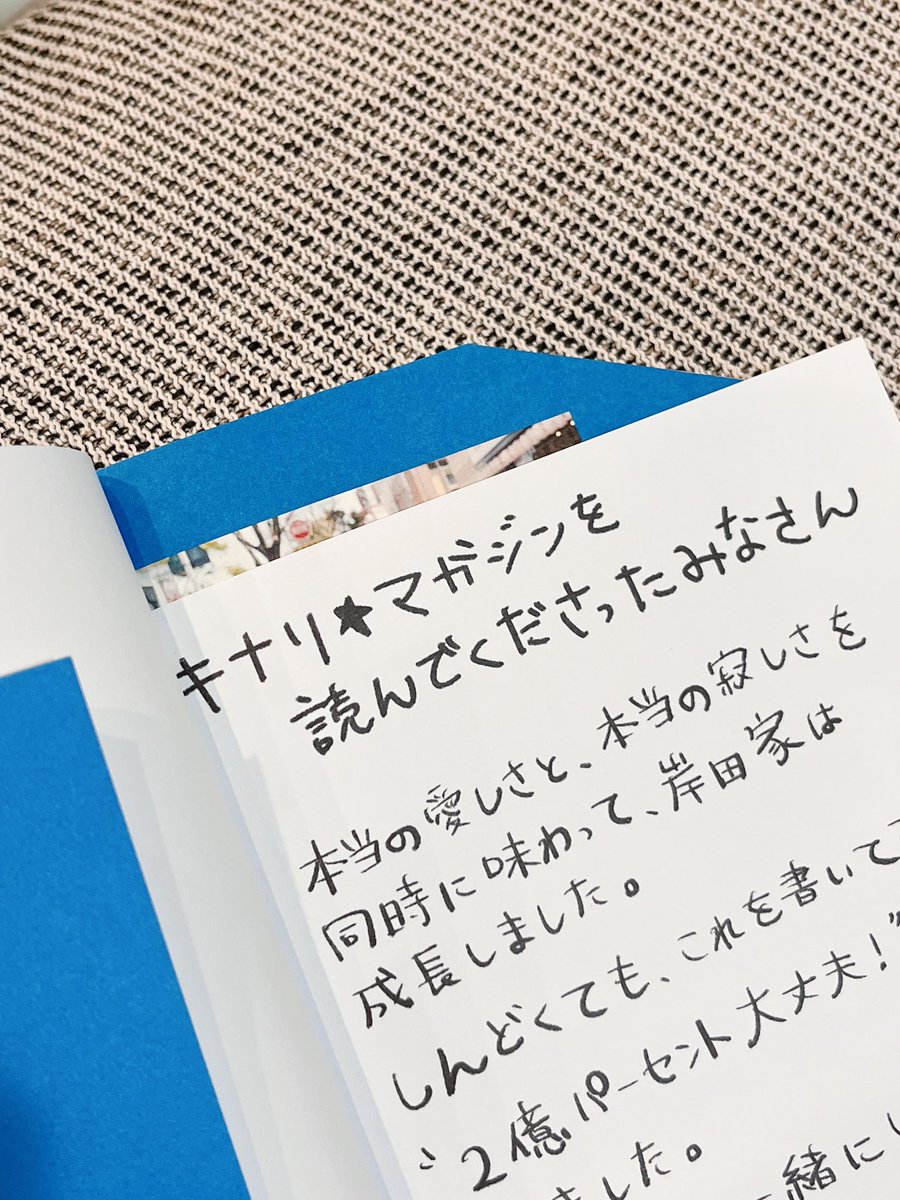 キナリ★マガジンを
読んでくださったみなさん
本当の愛しさと、本当の寂しさを
同時に味わって、岸田家は
成長しました。
しんどくても、これを書いて
"2億パーセント大丈夫!"
ました。
緒に